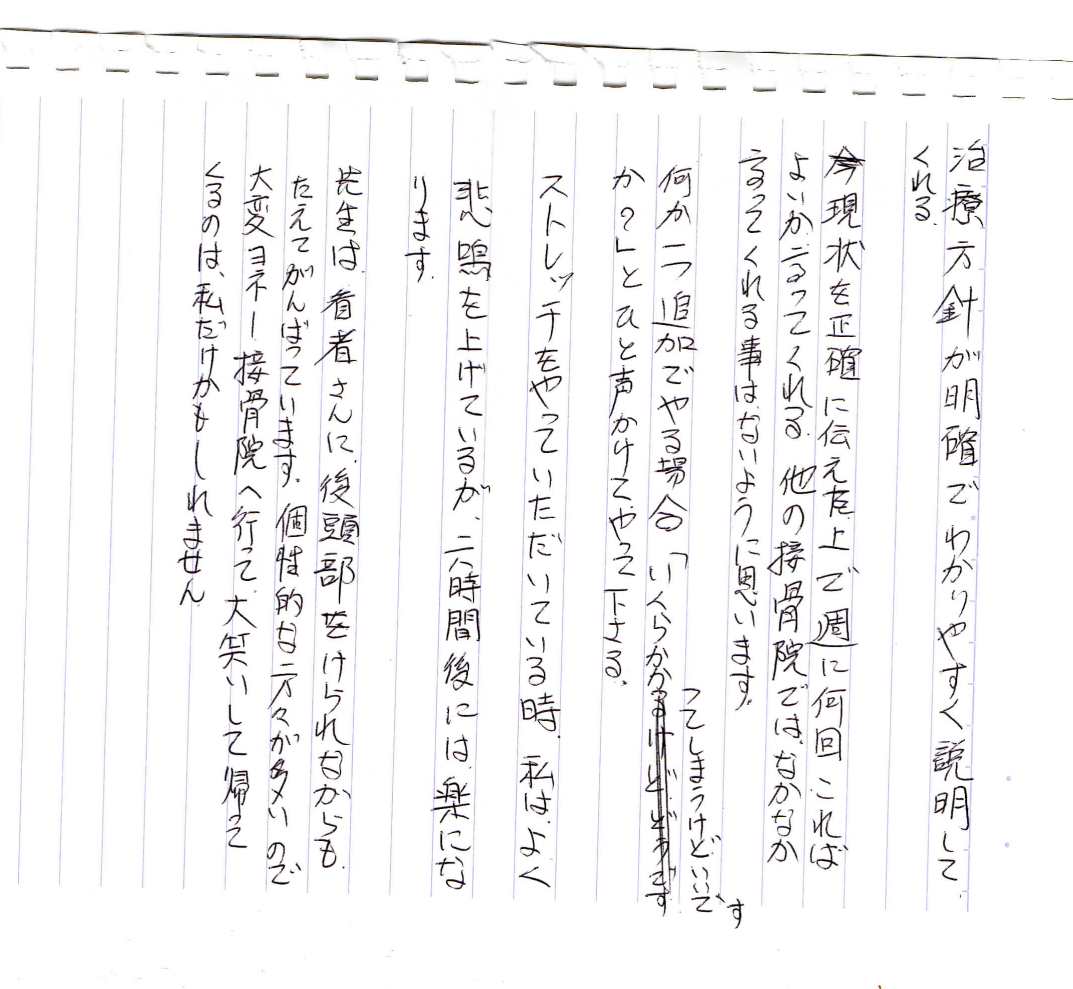 治療方針が明確でわかりやすく説明して
くれる。
現状を正確に伝えた上で週に何回これば
よいか言ってくれる。他の接骨院では、なかなか
言ってくれる事はないように思います。
何か一つ追加でやる場合「いくらかかってしまうけどいいです
か？」とひと声かけて、やって下さる。
ストレッチをやっていただいている時、私は、よく
悲鳴を上げているが、二六時間後には、楽にな
ります。
先生は、患者さんに、後頭部をけられながらも、
たえてがんばっています。個性的な方々が多いので
大変ヨネー接骨院へ行って、大笑いして帰って
くるのは、私だけかもしれません